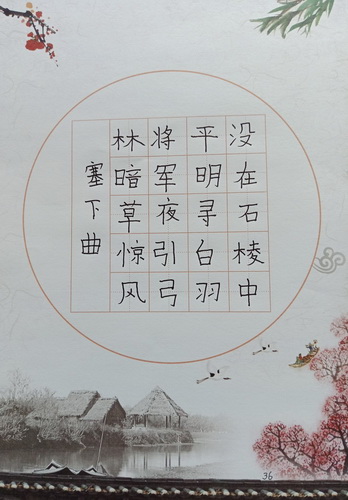 塞下曲
林暗草惊风
将军夜引弓
平明寻白羽
没在石棱中
36